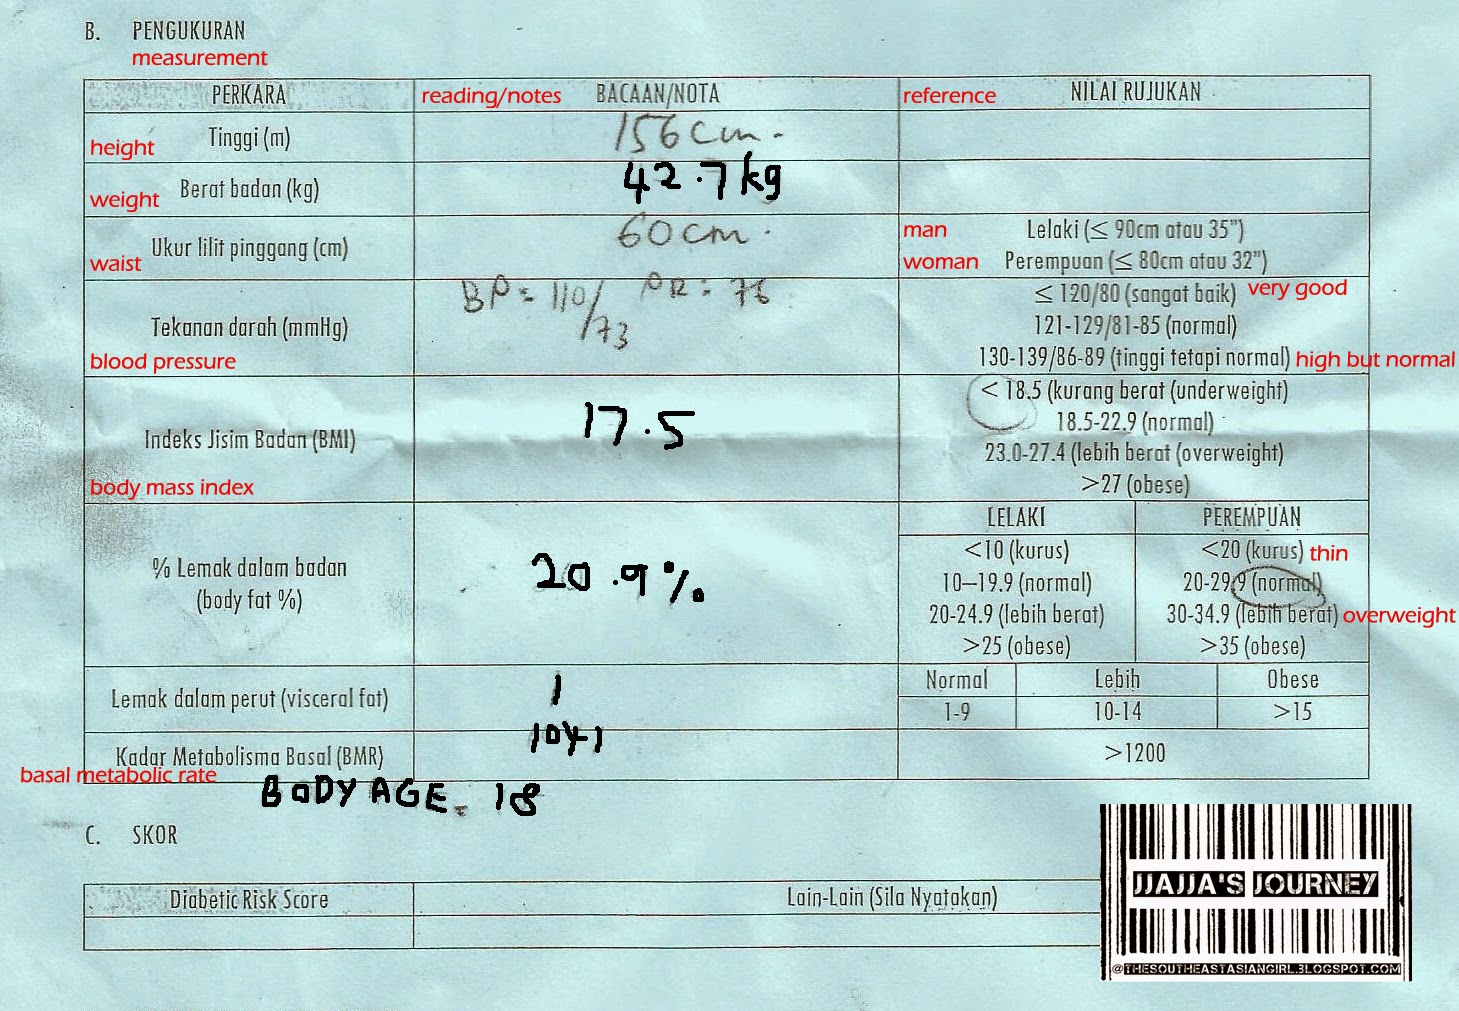 B. PENGUKURAN
measurement
PERKARA
reading/notes BACAAN/NOTA
reference NILAI RUJUKAN
height Tinggi (m)
156 cm.
weight Berat badan (kg)
42.7 kg
waist Ukur lilit pinggang (cm)
60 cm.
man Lelaki (≤ 90cm atau 35")
woman Perempuan (≤ 80cm atau 32")
Tekanan darah (mmHg)
blood pressure
BP = 110/73 PR: 76
≤ 120/80 (sangat baik) very good
121-129/81-85 (normal)
130-139/86-89 (tinggi tetapi normal) high but normal
Indeks Jisim Badan (BMI)
body mass index
17.5
< 18.5 (kurang berat (underweight)
18.5-22.9 (normal)
23.0-27.4 (lebih berat (overweight)
>27 (obese)
% Lemak dalam badan
(body fat %)
20.9%
LELAKI PEREMPUAN
<10 (kurus) <20 (kurus) thin
10–19.9 (normal) 20-29.9 (normal)
20-24.9 (lebih berat) 30-34.9 (lebih berat) overweight
>25 (obese) >35 (obese)
Lemak dalam perut (visceral fat)
1
Normal Lebih Obese
1-9 10-14 >15
Kadar Metabolisma Basal (BMR)
basal metabolic rate
1041
>1200
BODY AGE. 18
C. SKOR
Diabetic Risk Score Lain-Lain (Sila Nyatakan)
JJAJJA'S JOURNEY
@THESOUTHEASTASIANGIRL.BLOGSPOT.COM